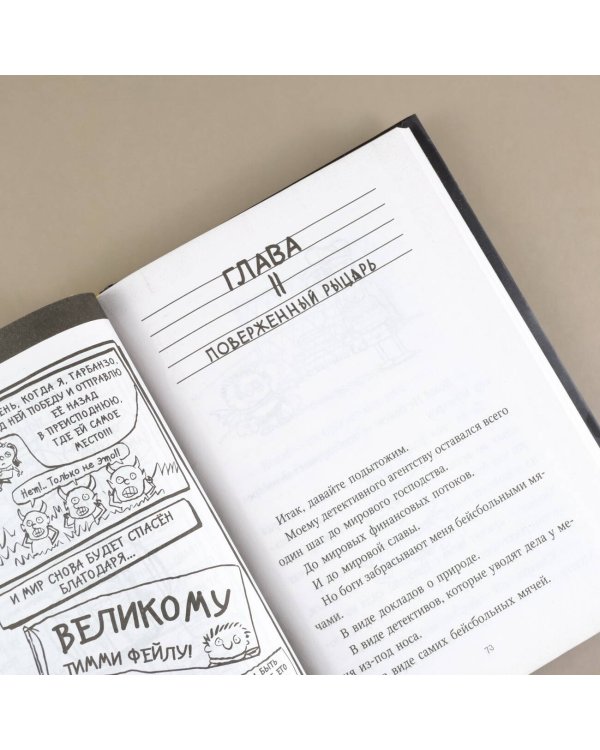 ЕНЬ, КОГДА Я, ГАРБАНЗО,
Д НЕЙ ПОБЕДУ И ОТПРАВЛЮ
ЕЁ НАЗАД
В ПРЕИСПОДНЮЮ,
ГДЕ ЕЙ САМОЕ
МЕСТО!!!
Нет!.. Только не это!!
И МИР СНОВА БУДЕТ СПАСЁН
БЛАГОДАРЯ...
ВЕЛИКОМУ
ТИММИ ФЕЙЛУ!
БЫТЬ
ЕГО
ГЛАВА
11
ПОВЕРЖЕННЫЙ РЫЦАРЬ
Итак, давайте подытожим.
Моему детективному агентству оставался всего
один шаг до мирового господства.
До мировых финансовых потоков.
И до мировой славы.
Но боги забрасывают меня бейсбольными мя-
чами.
В виде докладов о природе.
В виде детективов, которые уводят дела у ме-
ня из-под носа.
В виде самих бейсбольных мячей.
73